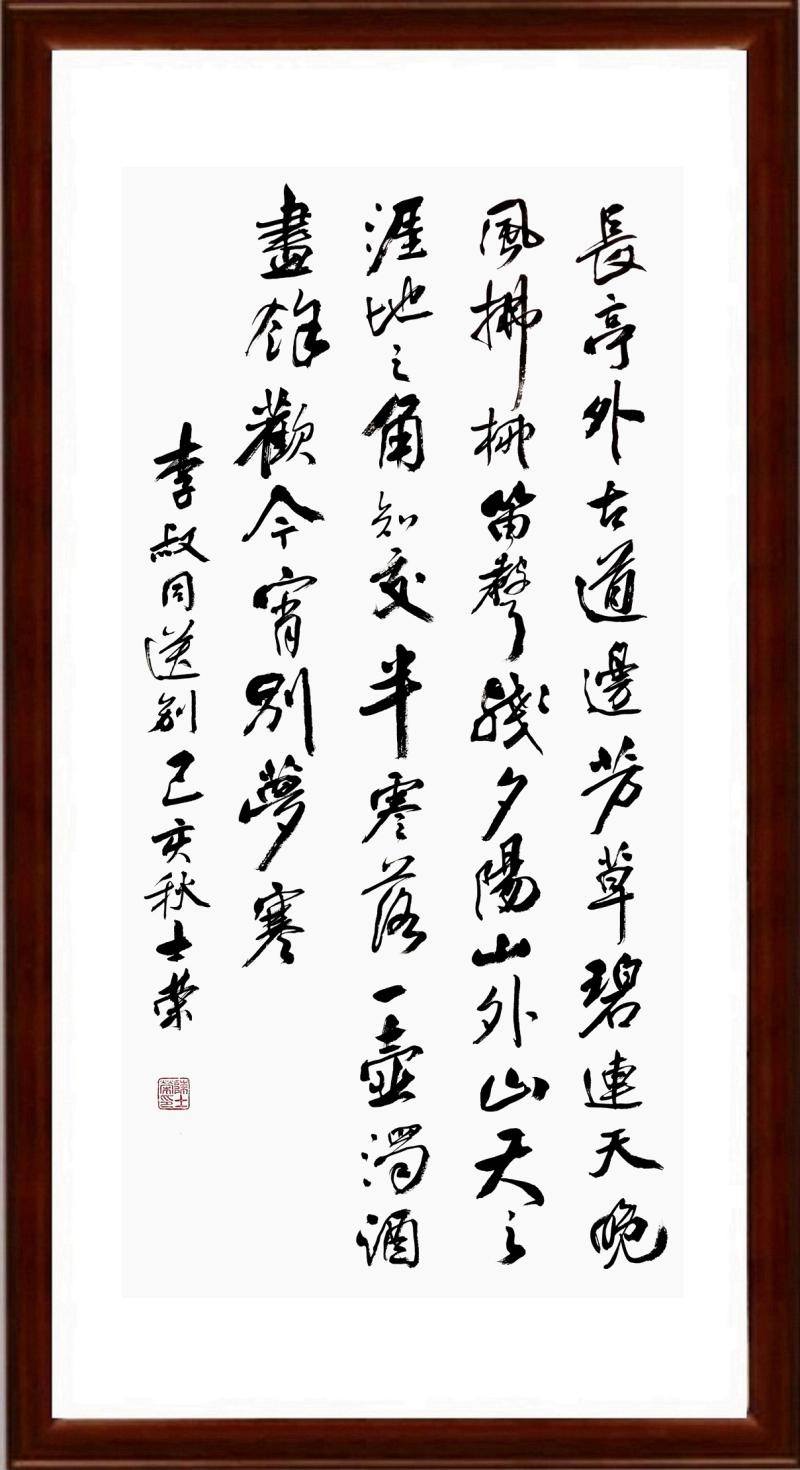 長亭外古道邊芳草碧連天晚
風拂柳笛聲殘夕陽山外山天之
涯地之角知交半零落一壺濁酒
盡餘歡今宵別夢寒
李叔同送別己亥秋士榮
陳士榮印